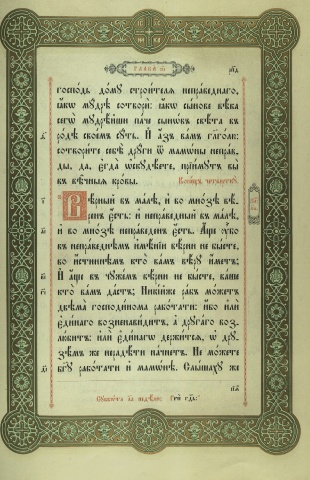 господь дому строителѧ неправеднаго,
ꙗкѡ мудрѣ сотвори: ꙗкѡ сынове вѣка
сегѡ мудрѣйши паче сынѡвъ свѣта въ
родѣ своемъ суть. И азъ вамъ глаголю:
сотворите себѣ други ѿ мамѡны неправ-
ды, да, егда ѡскудѣете, прїимутъ вы
въ вѣчныѧ кровы.
Вѣрный въ малѣ, и во мнозѣ вѣ-
ренъ есть: и неправедный въ малѣ,
и во мнозѣ неправеденъ есть. Аще убо
въ неправеднѣмъ имѣнїи вѣрни не бысте,
во истиннѣмъ кто вамъ вѣру иметъ;
И аще въ чужемъ вѣрни не бысте, ваше
кто вамъ дастъ; Никїйже рабъ можетъ
двѣма господинома работати: ибо или
единаго возненавидитъ, а другаго воз-
любитъ: или единагѡ держитсѧ, ѡ дру-
зѣмъ же нерадѣти начнетъ. Не можете
бг҃у работати и мамѡнѣ. Слышаху же